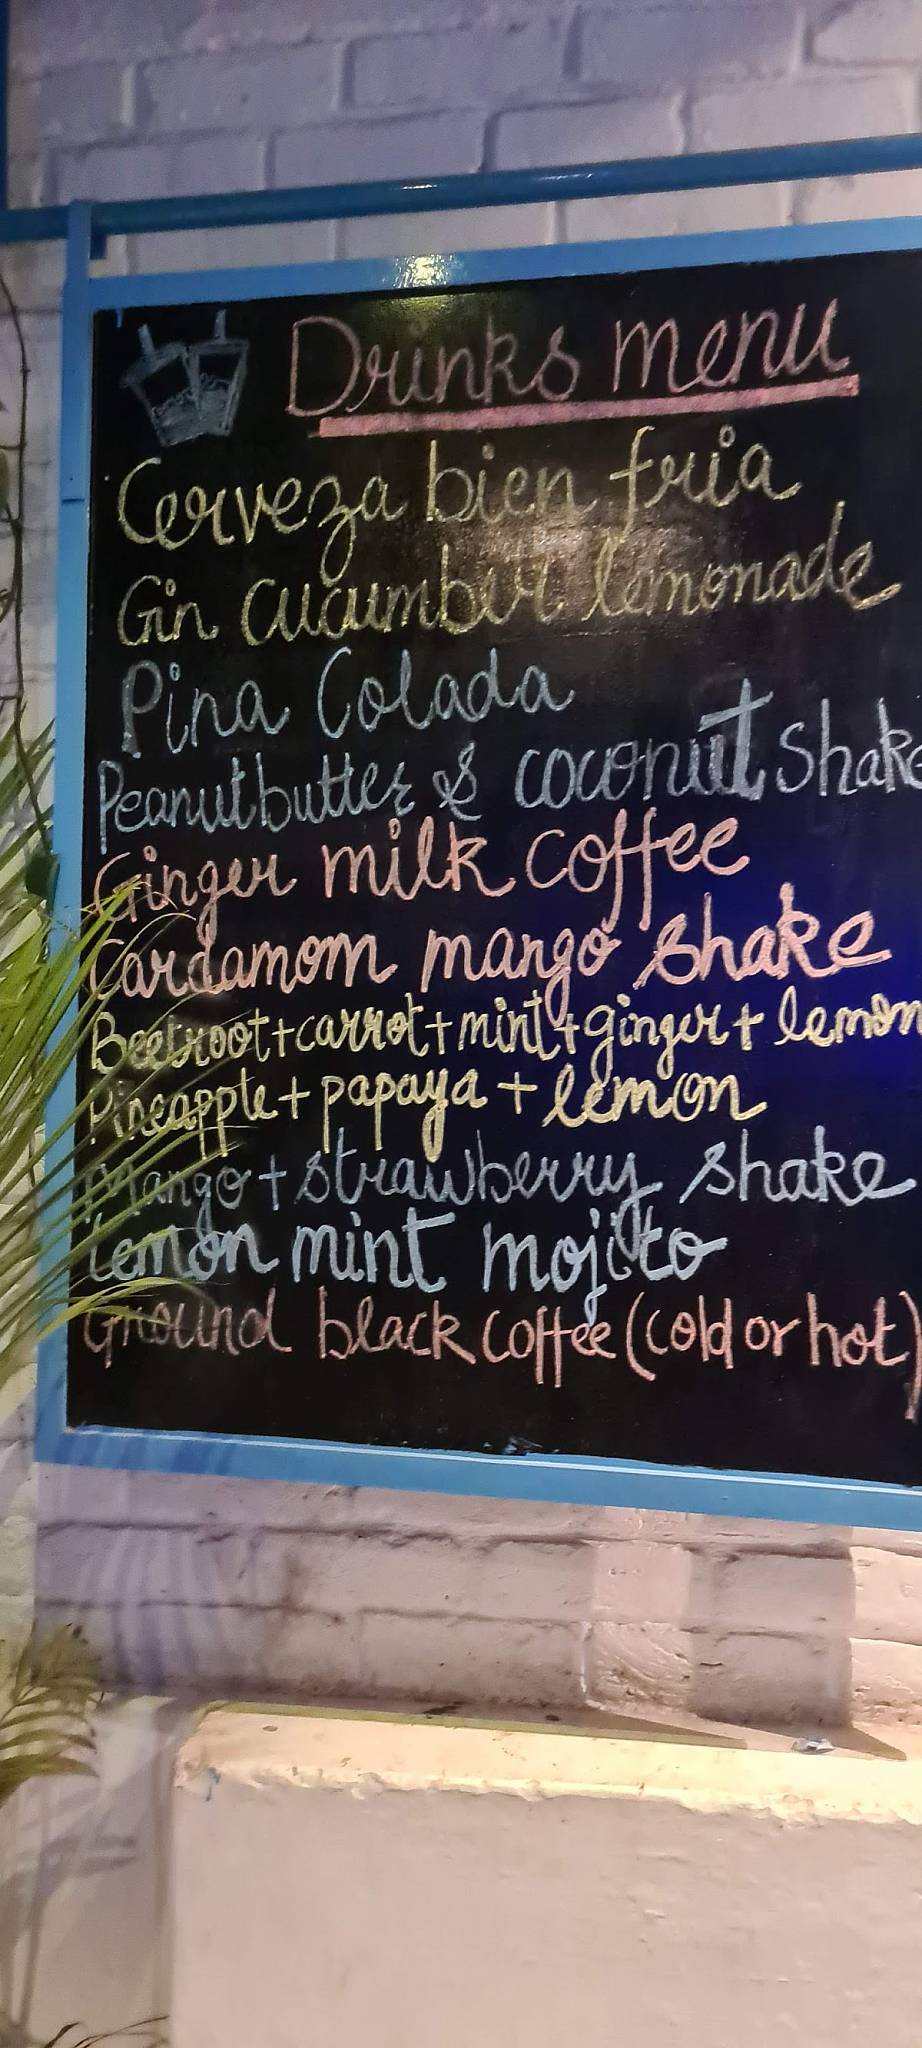 Drinks menu
Cerveza bien fria
Gin cucumber lemonade
Pina Colada
Peanutbutter & coconut Shake
Ginger milk coffee
Cardamom mango shake
Beetroot+carrot+mint+ginger+lemon
Pineapple+papaya+lemon
Mango+strawberry shake
Lemon mint mojito
Ground black coffee (cold or hot)